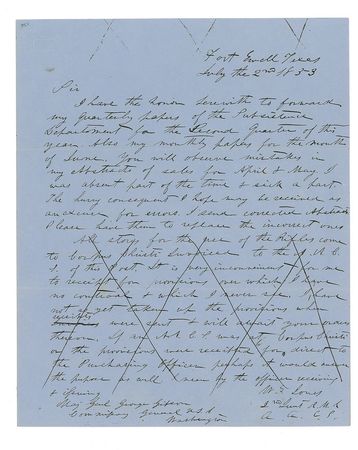 Fort Ewell Texas
July the 2nd 1853
Sir
I have the honor herewith to forward
my Quarterly papers of the Subsistence
Department for the Second Quarter of this
year. Also my monthly papers for the month
of June. You will observe mistakes in
my Abstracts of sales for April & May. I
was absent part of the time & sick a part.
The hury consequent I hope may be received as
an excuse for errors. I send corrected Abstracts
Please have them to replace the incorrect ones
All stores for the use of the Rifles come
to Corpus Christi invoiced to the A. A. C.
S. of this Post. It is very inconvenient for me
to receipt for provisions over which I have
no controul & which I never see. I have
not yet taken up the provisions when
were sent & will await your orders
thereon. If an A. A. C. S. was at Corpus Christi
on the provisions were receipted for direct to
the Purchasing Officer perhaps it would answer
the purpose as well seen by the officer receiving
& issuing
W. E. Jones
Maj Genl George Gibson
2nd Lieut R. M. R.
Commissary General U S A
A. A. C. S.
Washington